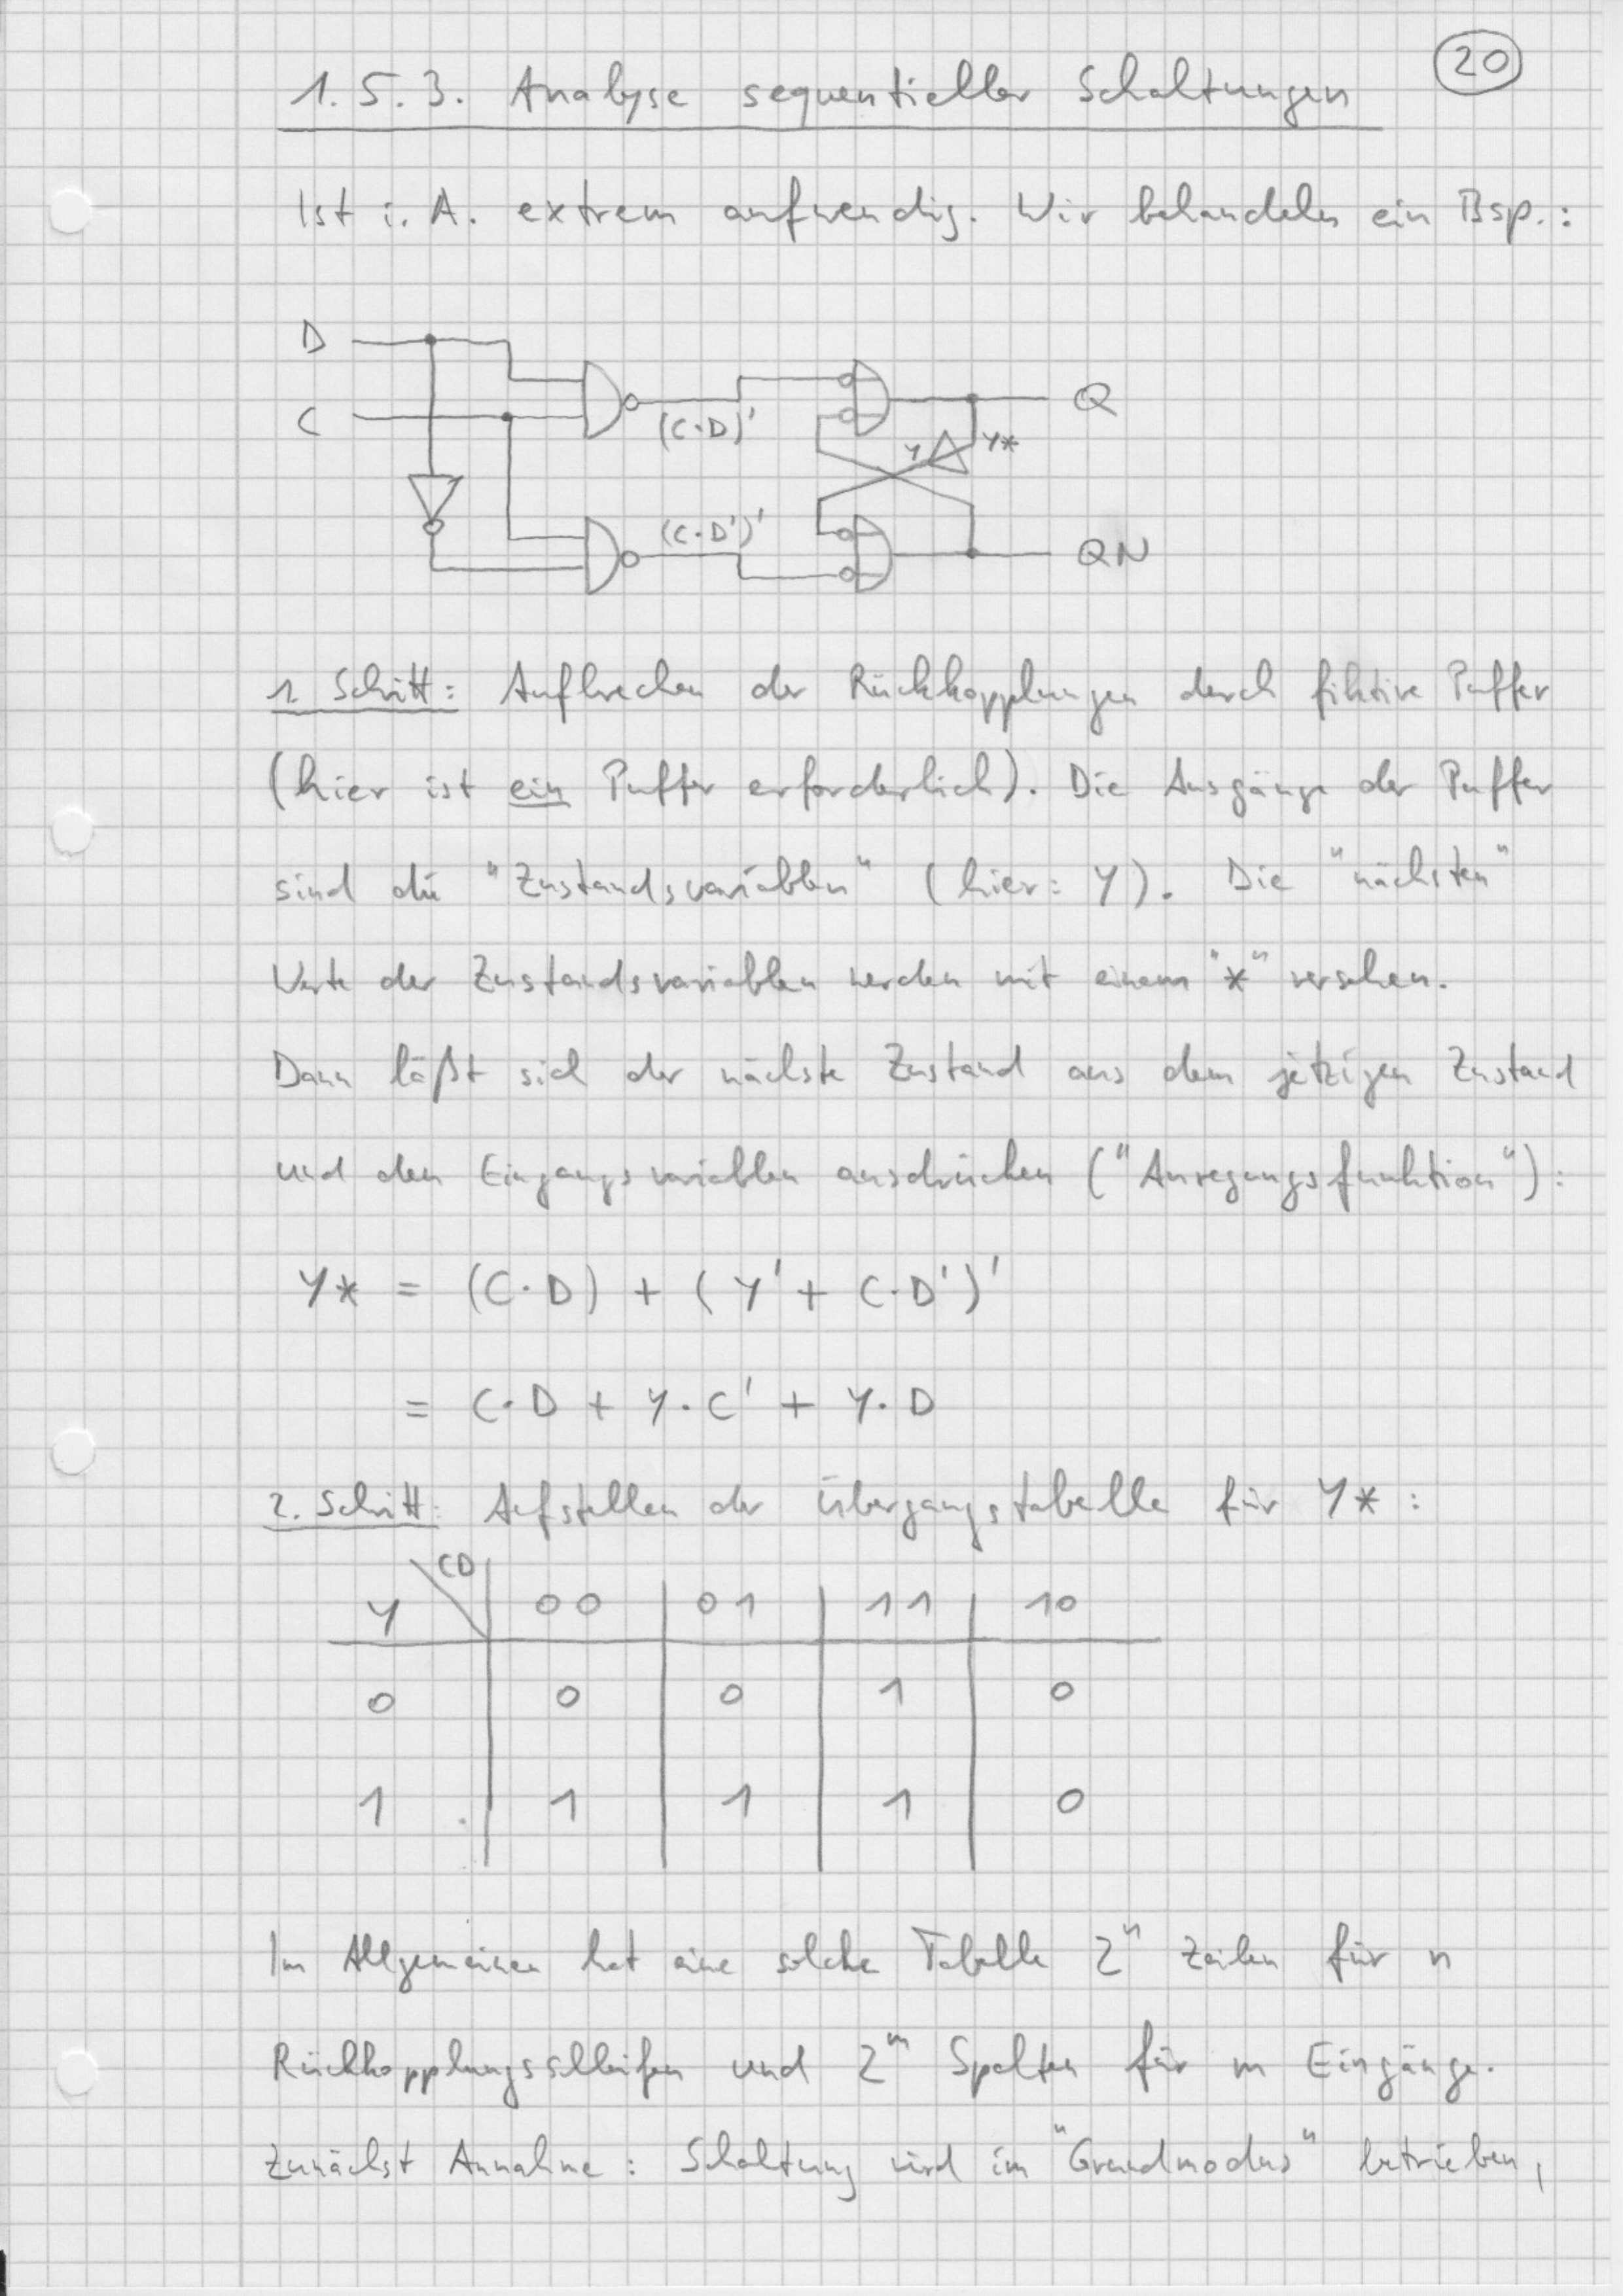 20
1.5.3. Analyse sequentieller Schaltungen
Ist i. A. extrem aufwendig. Wir behandeln ein Bsp.:
D
C
(C·D)'
Y
Y*
Q
(C·D')'
QN
1. Schritt: Aufbrechen der Rückkopplungen durch fiktive Puffer
(hier ist ein Puffer erforderlich). Die Ausgänge der Puffer
sind die "Zustandsvariablen" (hier: Y). Die "nächsten"
Werte der Zustandsvariablen werden mit einem "*" versehen.
Dann läßt sich der nächste Zustand aus dem jetzigen Zustand
und den Eingangsvariablen ausdrücken ("Anregungsfunktion"):
Y* = (C·D) + (Y' + C·D')'
= C·D + Y·C' + Y·D
2. Schritt: Aufstellen der Übergangstabelle für Y*:
CD
Y 00 01 11 10
0 0 0 1 0
1 1 1 1 0
Im Allgemeinen hat eine solche Tabelle 2ⁿ Zeilen für n
Rückkopplungsschleifen und 2ᵐ Spalten für m Eingänge.
Zunächst Annahme: Schaltung wird im "Grundmodus" betrieben,